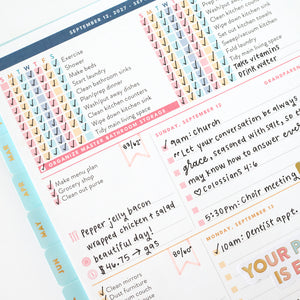 SEPTEMBER 13, 2027 -
M T W T F S S
Exercise
Shower
Make beds
Start laundry
Clean bathroom sinks
Plan/prep dinner
Wash/put away dishes
Clean kitchen counters
Clean kitchen sink
Wipe down kitchen sink
Tidy main living space
Wipe down kitchen
Set out kitchen towels
Sweep/vacuum kitchen
Fold laundry
Tidy main living space
Take vitamins
Drink water
ORGANIZE MASTER BATHROOM STORAGE
GRANDPARENTS
Make menu plan
Grocery shop
Clean out purse
80/65
SUNDAY, SEPTEMBER 12
9am: church
Let your conversation be always
grace, seasoned with salt, so th
may know how to answer ever
Colossians 4:6
5:30pm: Choir meeting
Pepper jelly bacon
wrapped chicken + salad
beautiful day!
$46.75 → 295
80/60
MONDAY, SEPTEMBER 13
10am: Dentist appt.
Clean mirrors
Dust furniture
YOUR P
IS
MAR
MAY
JUN